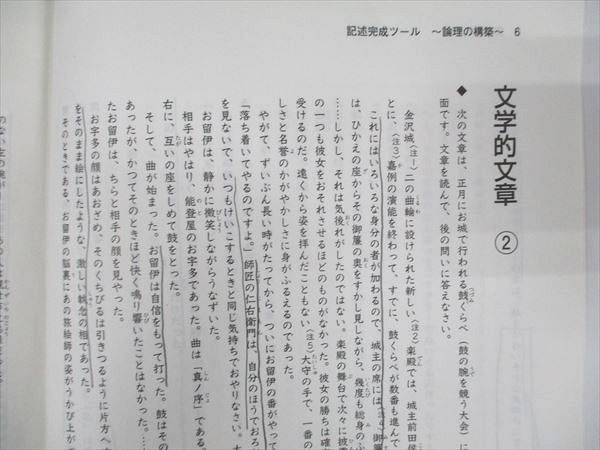 記述完成ツール ～論理の構築～ 6
文学的文章 ②
◆ 次の文章は、正月にお城で行われる鼓くらべ(鼓の腕を競う大会)に
面です。文章を読んで、後の問いに答えなさい。
金沢城(注1)二の曲輪に設けられた新しい(注2)楽殿では、城主前田侯
とに、(注3)嘉例の演能を終わって、すでに、鼓くらべが数番も進んで
これにはいろいろな身分の者が加わるので、城主の席には(注4)御簾
は、ひかえの座からその御簾の奥をすかし見しながら、幾度も総身のふ
……しかし、それは気後れがしたのではない。楽殿の舞台で次々に披
の一つも彼女をおそれさせるほどのものがなかった。彼女の勝ちは確
受けるのだ。遠くから姿を拝んだこともない(注5)大守の手で、一番の
しさと名誉のかがやかしさに身がふるえるのであった。
やがて、ずいぶん長い時がたってから、ついにお留伊の番がやって
「落ち着いてやるのですよ。」師匠の仁右衛門は、自分のほうでおろ
を見ないで、いつもけいこするときと同じ気持ちでおやりなさい。
お留伊は、静かに微笑しながらうなずいた。
相手はやはり、能登屋のお宇多であった。曲は「真ノ序」である。
右に、互いの座をしめて鼓をとった。
そして、曲が始まった。お留伊は自信をもって打った。鼓はその
あったが、かつてそのときほど快く鳴り響いたことはなかった。……
たお留伊は、ちらと相手の顔を見やった。
お宇多の顔はあおざめ、そのくちびるは引きつるように片方へ
をそのまま絵にしたような、激しい執念の相であった。
そのときである、お留伊の脳裏にあの旅絵師の姿がうかび上が